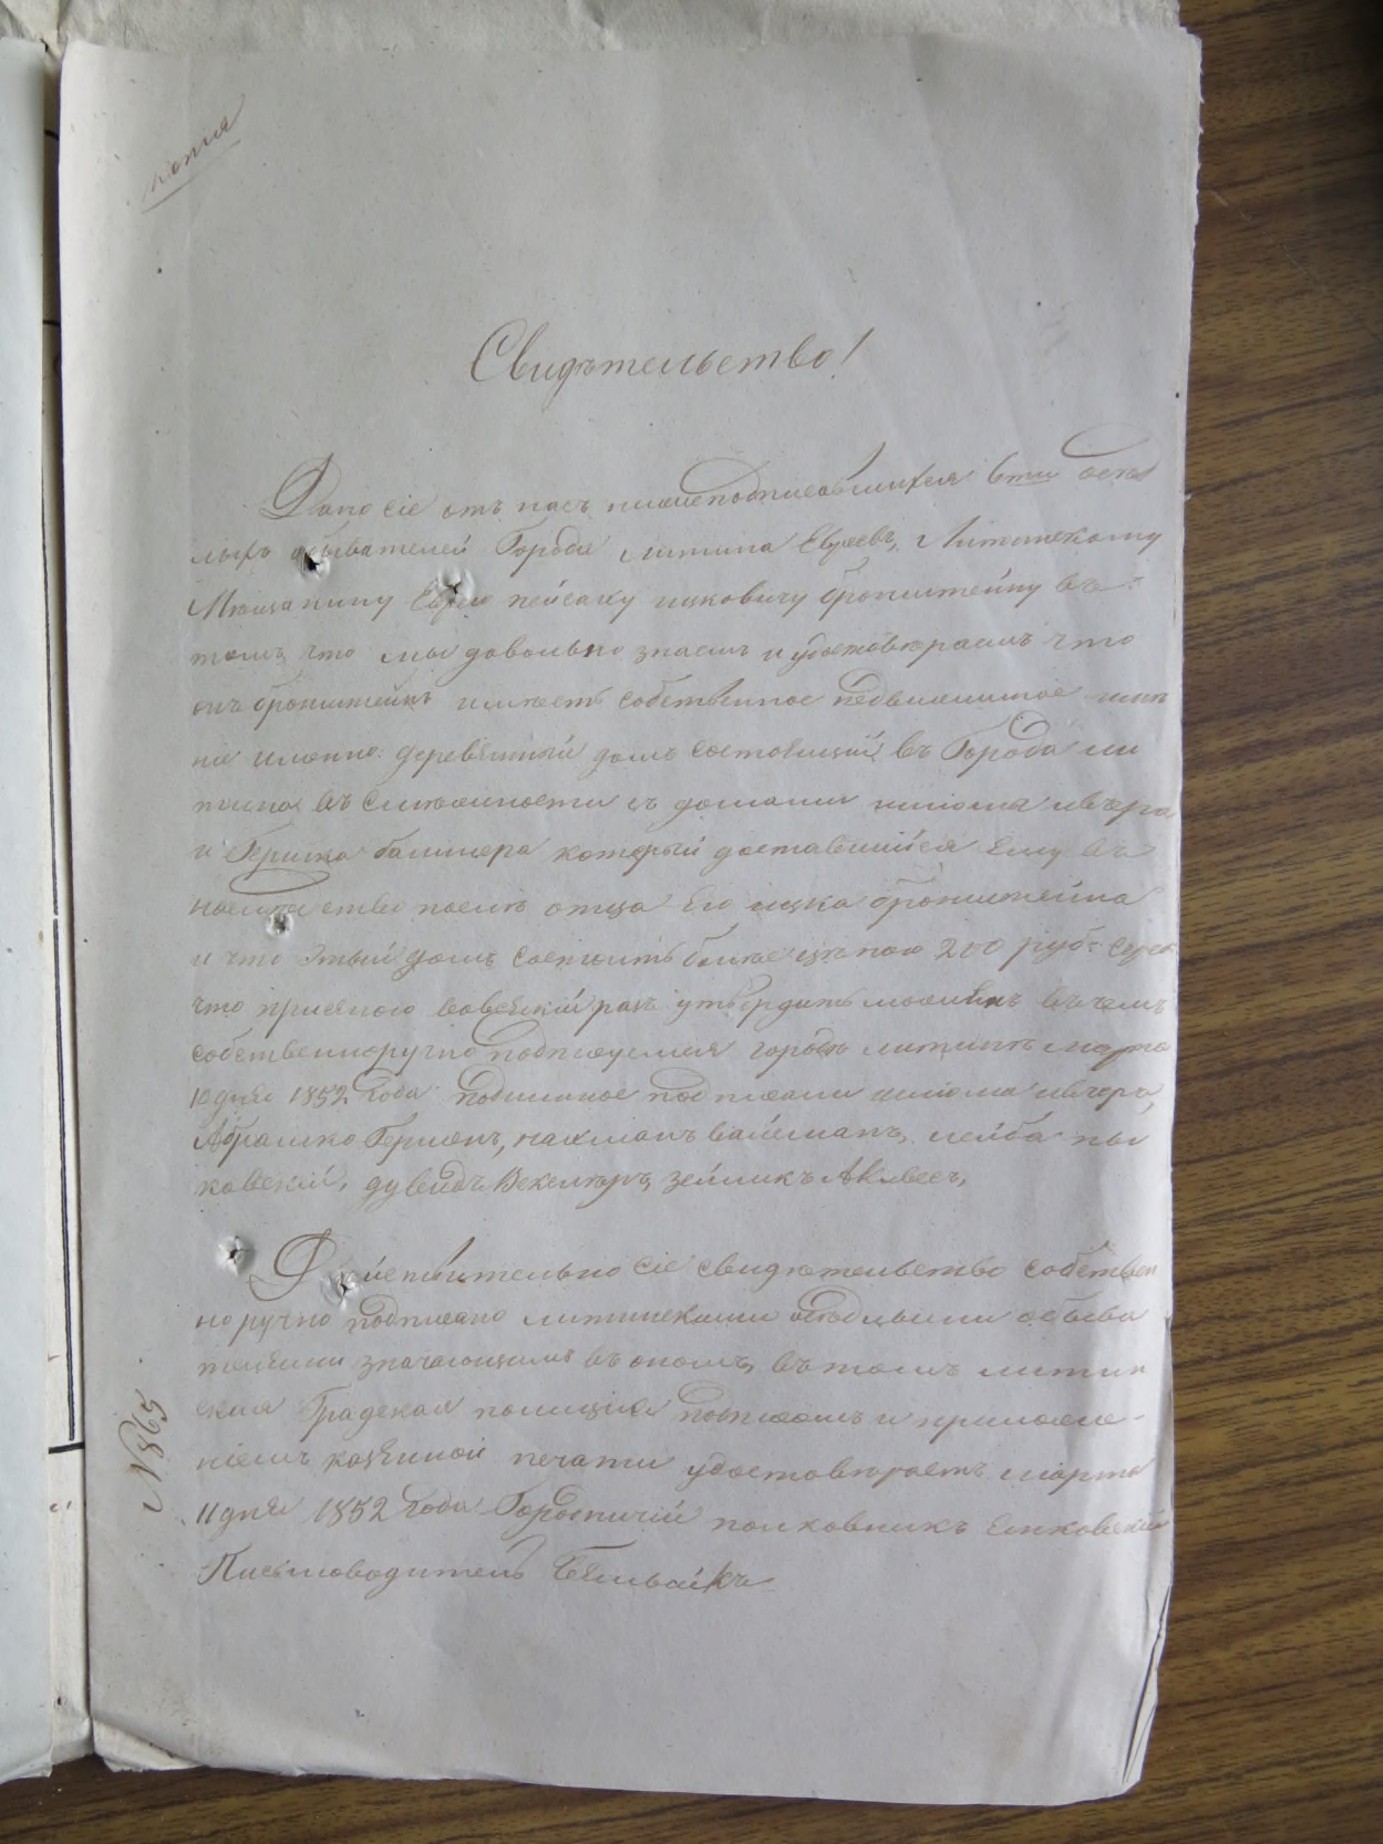 Копия
Свидѣтельство!
Дано сіе отъ насъ нижеподписавшихся 6ти осѣд
лыхъ обывателей Города Литина Евреевъ, Литинскому
Мѣщанину Еврею пейсаху ицковичу бронштейну въ
томъ что мы довольно знаемъ и удостовѣряемъ что
онъ бронштейнъ имѣетъ собственное недвижимое имѣ
ніе именно: деревянный домъ состоящій въ Города Ли
тина въ смѣжности съ домами шліома ивчера
и Гершка который доставшійся Ему въ
наслѣдствіе послѣ отца Его ицка бронштейна
и что Этый домъ состоитъ болѣе цѣною 200 руб: сереб
что присягою вовсякій разъ утвердить можемъ въ чемъ
собственноручно подписуемся городъ литинъ марта
10 дня 1852 Года подлинное подписали шліома ивчеръ,
Абрамко Гершенъ, нахманъ вайсманъ, лейба пы
ковскій, дувидъ Векслеръ, зейликъ
Дѣйствительно сіе свидѣтельство собствен
норучно подписано литинскими осѣдлыми обыва
телями значающимися въ ономъ, въ томъ литин
ская Градская полиція подписомъ и приложе-
ніемъ казенной печати удостовѣряетъ марта
11 дня 1852 Года Городничій полковникъ
Письмоводитель
№ 865